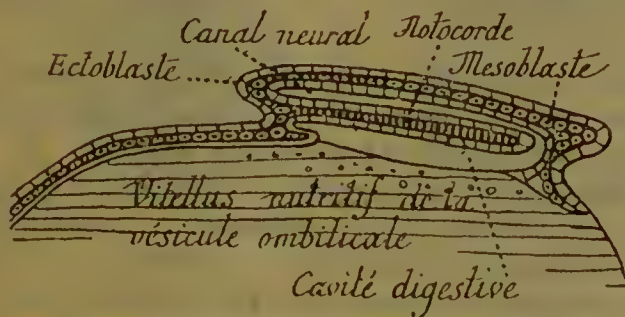 Canal neural
Notocorde
Ectoblaste
Mesoblaste
Vitellus nutritif de la
vésicule ombilicale
Cavité digestive